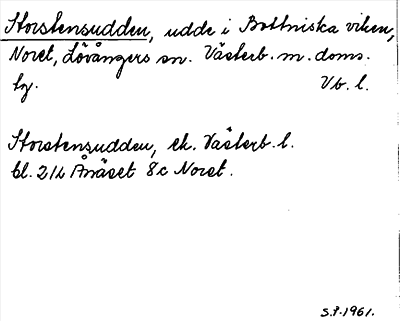 Storstensudden, udde i Bottniska viken,
Noret, Lövångers sn. Västerb. m. doms.
by. Vb. l.
Storstensudden, ek. Västerb. l.
bl. 21L Ånäset 8c Noret.
S.P. 1961.